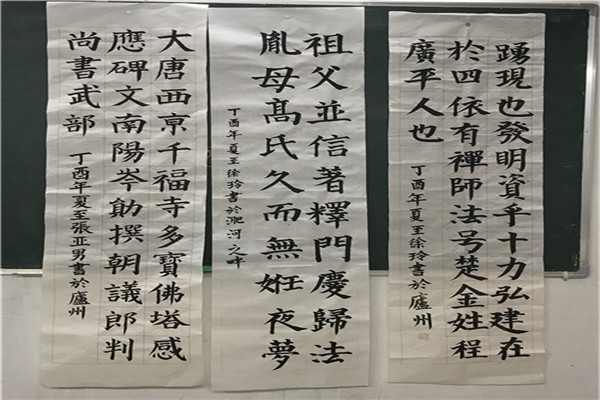 踴現也發明資乎十力弘建在
於四依有禪師法号楚金姓程
廣平人也
丁酉年夏王徐玲書於廬州
祖父並信著釋門慶歸法
胤母髙氏久而無妊夜夢
丁酉年夏王徐玲書於淝河之畔
大唐西亰千福寺多寶佛塔感
應碑文南陽岑勛撰朝議郎判
尚書武部
丁酉年夏至張亚男書於廬州